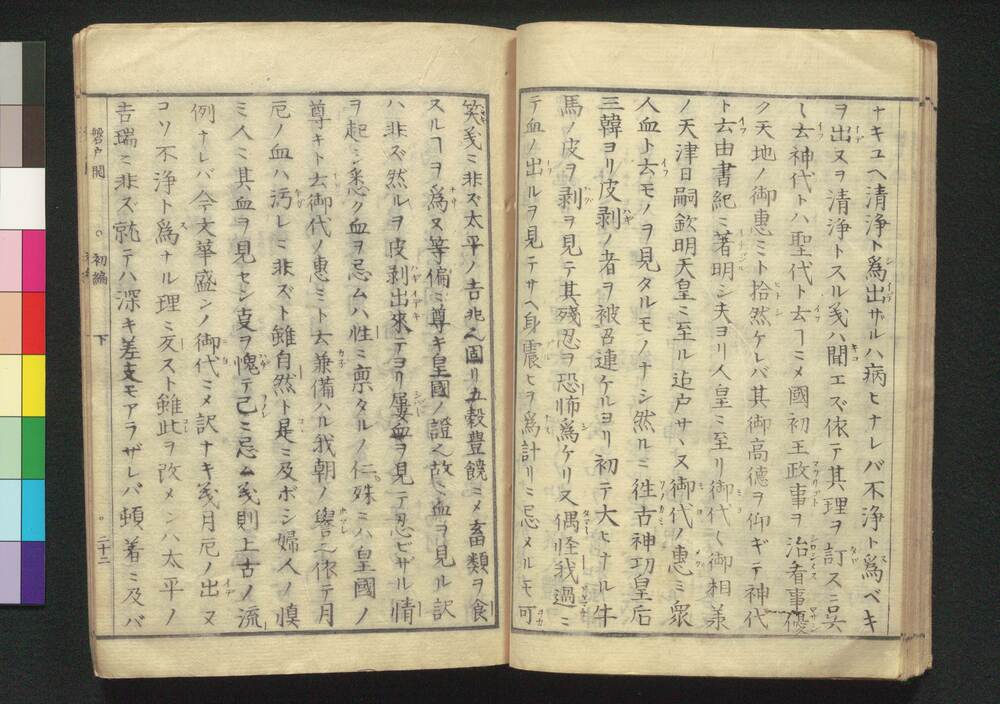 ナキユヘ清浄ト爲出サルハ病ヒナレバ不浄ト爲ベキ
ヲ出ヌヲ清浄トスル義ハ聞エズ依テ其理ヲ訂スニ呉
〱云神代トハ聖代ト云ヿニメ國初王政事ヲ治看事優
ク天地ノ御惠ミト拾然ケレバ其御高德ヲ仰ギテ神代
ト云由書紀ニ著明シ夫ヨリ人皇ニ至リ御代〱御相羕
ノ天津日嗣欽明天皇ニ至ル迠戸サヽヌ御代ノ惠ミ衆
人血ト云モノヲ見タルモノナシ然ルニ徃古神功皇后
三韓ヨリ皮剥ノ者ヲ被召連ケルヨリ初テ大ヒナル牛
馬ノ皮ヲ剥ヲ見テ其残忍ヲ恐怖爲ケリ又偶怪我過ニ
テ血ノ出ルヲ見テサヘ身震ヒヲ爲計リニ忌メルモ可
笑義ニ非ズ太平ノ吉兆也固リ五穀豊饒ニメ畜類ヲ食
スルヿヲ爲ヌ等偏ニ尊キ皇國ノ證也故ニ血ヲ見ル訳
ハ非ズ然ルヲ皮剥出來テヨリ屢血ヲ見テ忍ビザル情
ヲ起ミ悉ク血ヲ忌ムハ性ミ禀タルノ仁殊ミハ皇國ノ
尊キト云御代ノ惠ミト云兼備ハル我朝ノ譽也依テ月
厄ノ血ハ汚レミ非ズト雖自然ト是ミ及ボシ婦人ノ慎
ミ人ミ其血ヲ見セン叓ヲ愧テ己ミ忌ム義則上古ノ流
例ナレバ今文華盛ンノ御代ミメ訳ナキ義月厄ノ出ヌ
コソ不浄ト爲ナル理ミ反スト雖此ヲ改メンハ太平ノ
吉瑞ミ非ズ就テハ深キ差支モアラザレバ頓着ミ及バ
磐戸開　初編　下　二十二